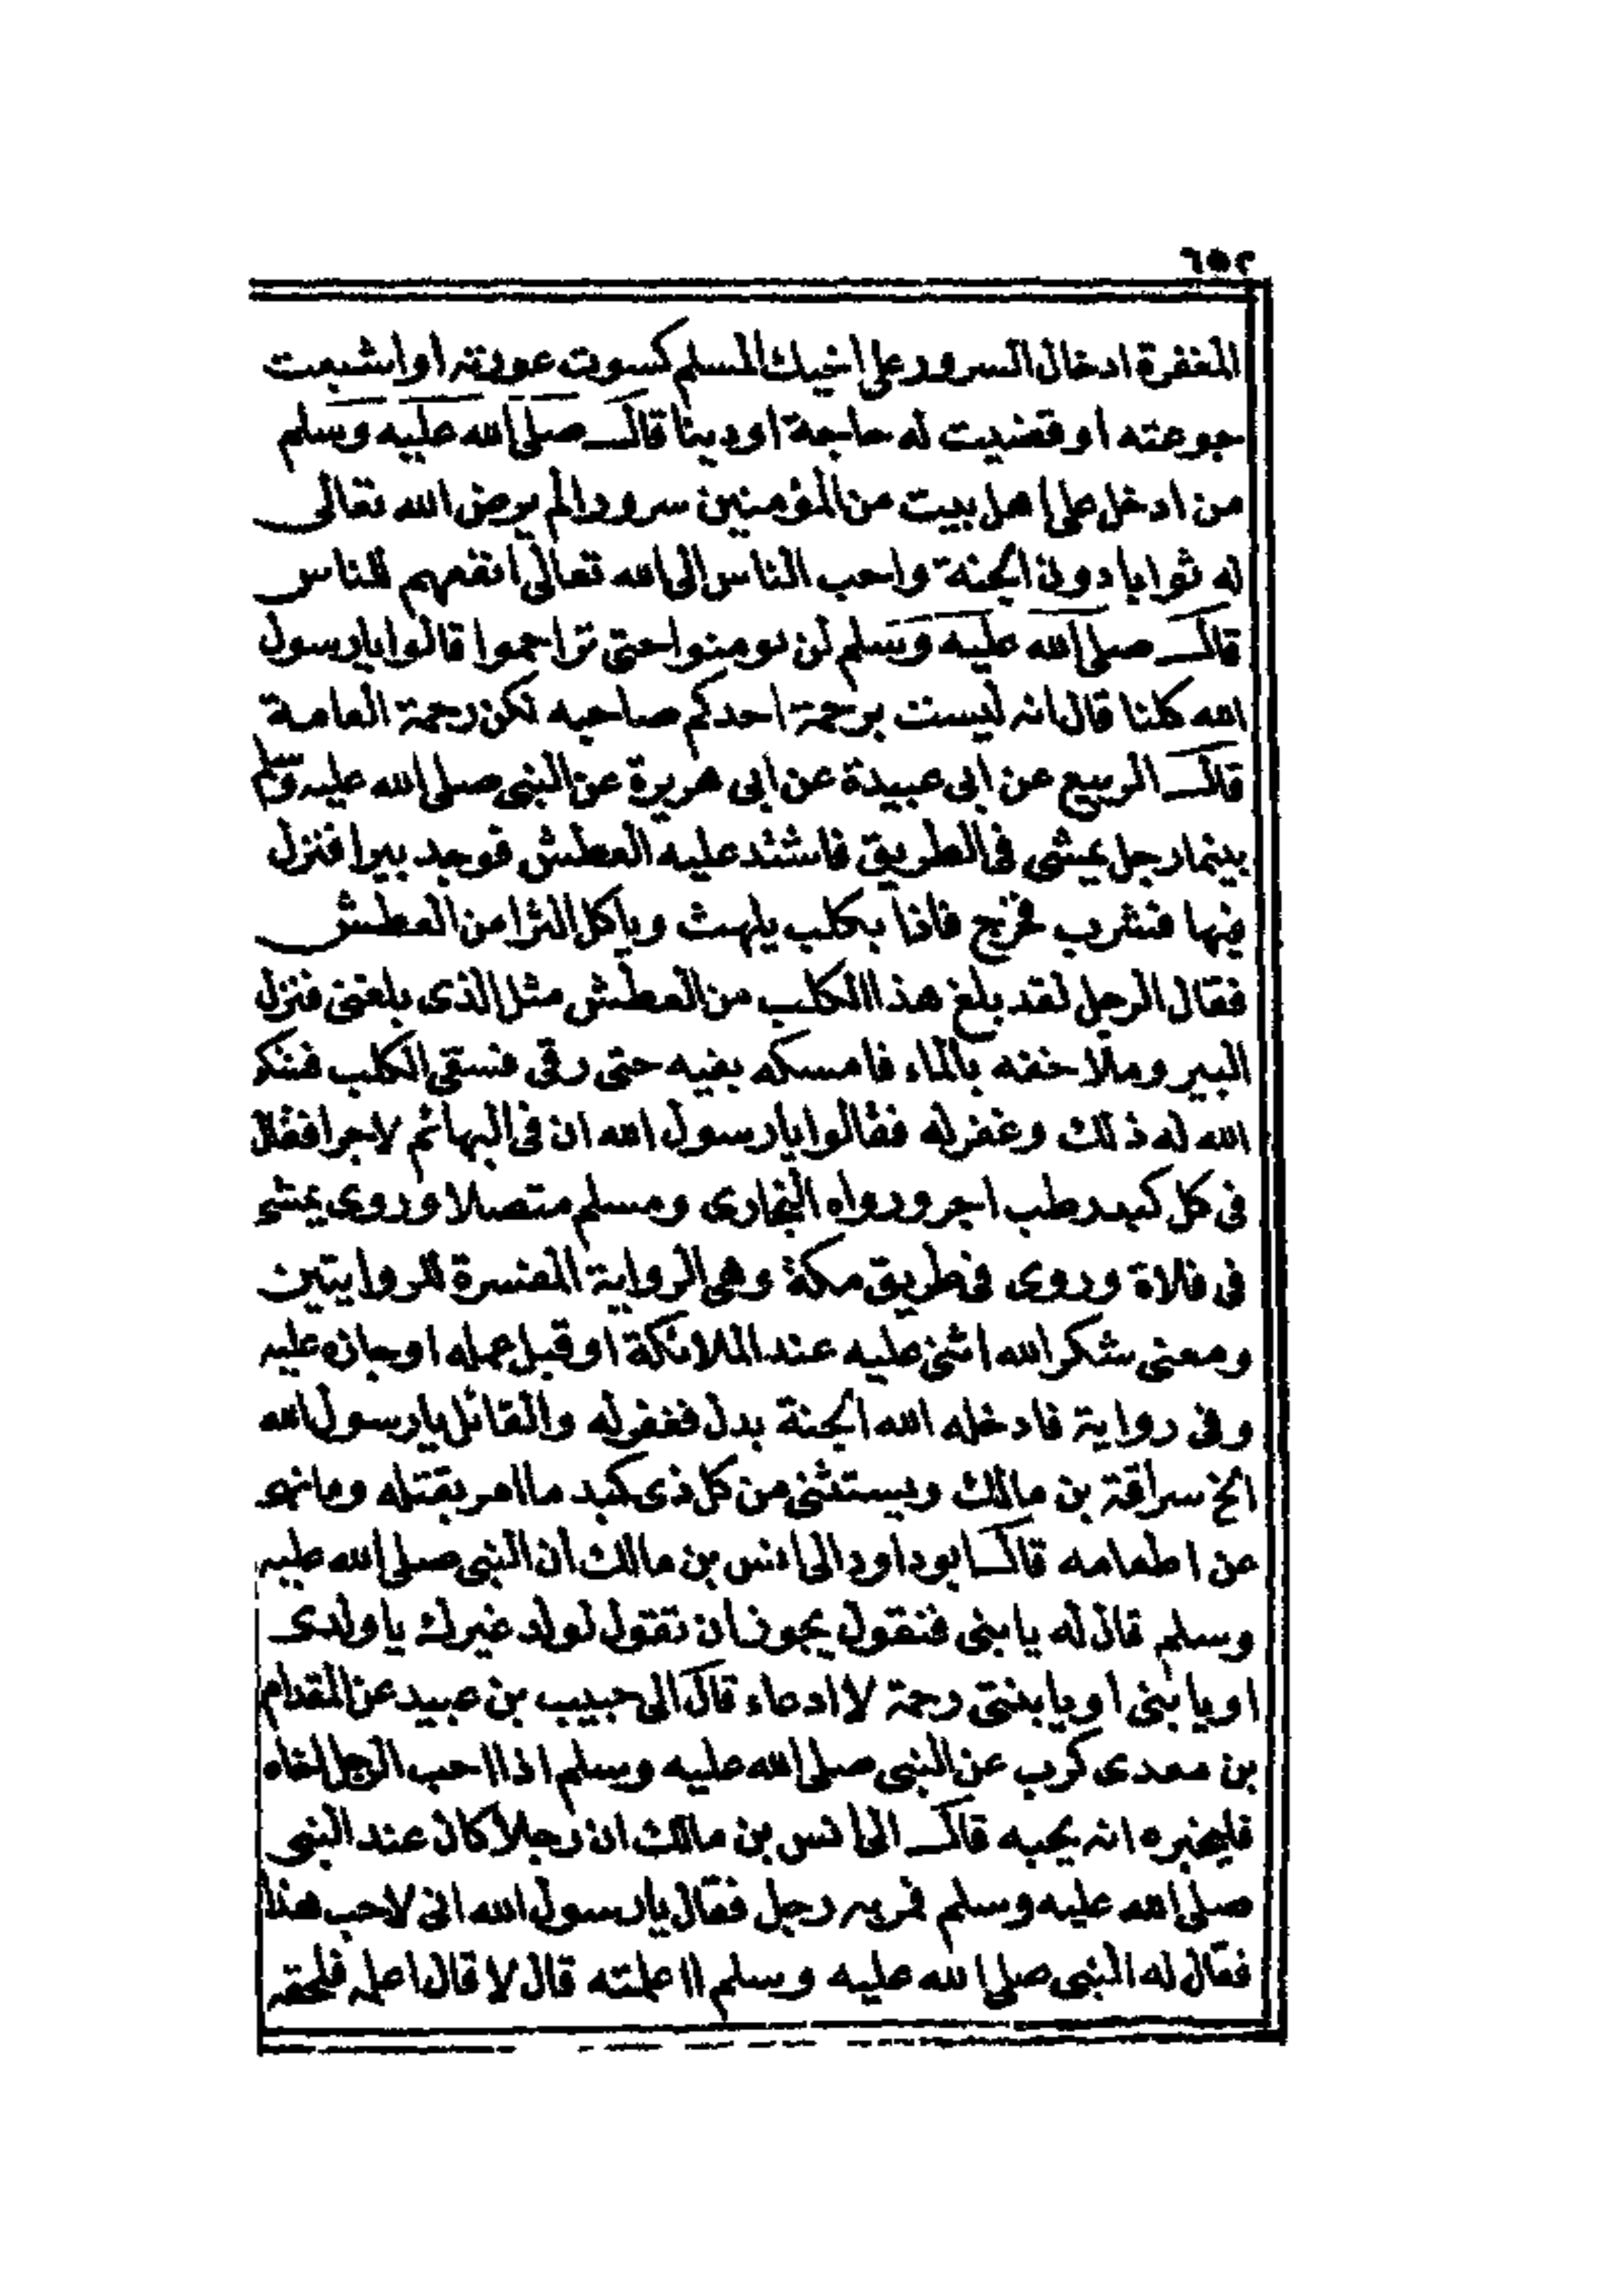 ٦٥٢
المغفرة ادخال السرور على اخيك المسلم كسوت عورته او اشبعت
جوعته او قضيت له حاجة او دينا قال صلى الله عليه وسلم
من ادخل على اهل بيت من المؤمنين سرورا لم يرض الله تعالى
له ثوابا دون الجنة واحب الناس الى الله تعالى انفعهم للناس
قال صلى الله عليه وسلم لن تومنوا حتى تراحموا قالوا يا رسول
الله كلنا قال انه ليست برحمة احدكم صاحبه لكن رحمة العامة
قال الربيع عن ابى عبيدة عن ابى هريرة عن النبى صلى الله عليه وسلم
بينما رجل يمشى فى الطريق فاشتد عليه العطش فوجد بيرا فنزل
فيها فشرب فخرج فاذا بكلب يلهث وياكل الثرا من العطش
فقال الرجل لقد بلغ هذا الكلب من العطش مثل الذى بلغنى فنزل
البير وملا خفه بالماء فامسكه بفيه حتى رقى فسقى الكلب فشكر
الله له ذلك وغفر له فقالوا يا رسول الله ان فى البهائم لاجرا فقال
فى كل كبد رطب اجر ورواه البخارى ومسلم متصلا وروى يمشى
فى فلاة وروى فى طريق مكة وهى الرواية المفسرة للروايتين
ومعنى شكر الله اثنى عليه عند الملائكة او قبل عمله او جازه عليه
وفى رواية فادخله الله الجنة بدل فغفر له والقائل يا رسول الله
الخ سراقة بن مالك ويستثنى من كل ذى كبد ما امر بقتله وما نهى
عن اطعامه قال ابو داود الى انس بن مالك ان النبى صلى الله عليه
وسلم قال له يا بنى فنقول يجوز ان تقول لولد غيرك يا ولدى
او يا بنى او يا بنتى رحمة لا ادعاء قال الى حبيب بن عبيد عن المقدام
بن معدى كرب عن النبى صلى الله عليه وسلم اذا احب الرجل اخاه
فليخبره انه يحبه قال الى انس بن مالك ان رجلا كان عند النبى
صلى الله عليه وسلم فمر به رجل فقال يا رسول الله انى لاحب هذا
فقال له النبى صلى الله عليه وسلم ااعلمته قال لا قال اعلمه فلحقه